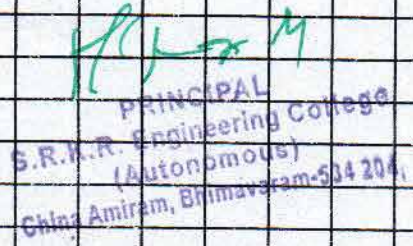 PRINCIPAL
S.R.K.R. Engineering College
(Autonomous)
China Amiram, Bhimavaram-534 204,